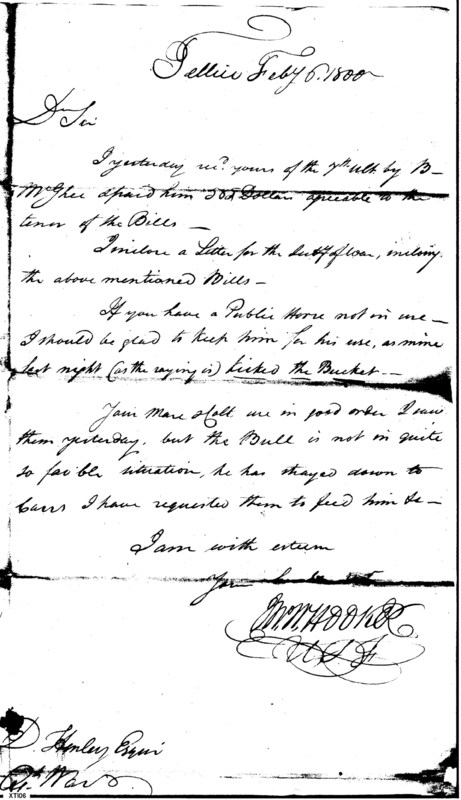 Tellico Feby 6. 1800
Dr Sir
I yesterday recd. yours of the 7th ulto by B-
McGhee & paid him Dollars agreeable to the
tenor of the Bills -
I inclose a Letter for the Secty of War, inclosing
the above mentioned Bills -
If you have a Public Horse not in use -
I should be glad to keep him for his use, as mine
last night (as the saying is) kicked the Bucket. -
Your Mare & Colt are in good order I saw
them yesterday, but the Bull is not in quite
so situation, he has strayed down to
Carrs I have requested them to feed him &c -
I am with esteem
Your
Wm HOOKER
U S F
D. Henley Esqr
Agt. War
XT106